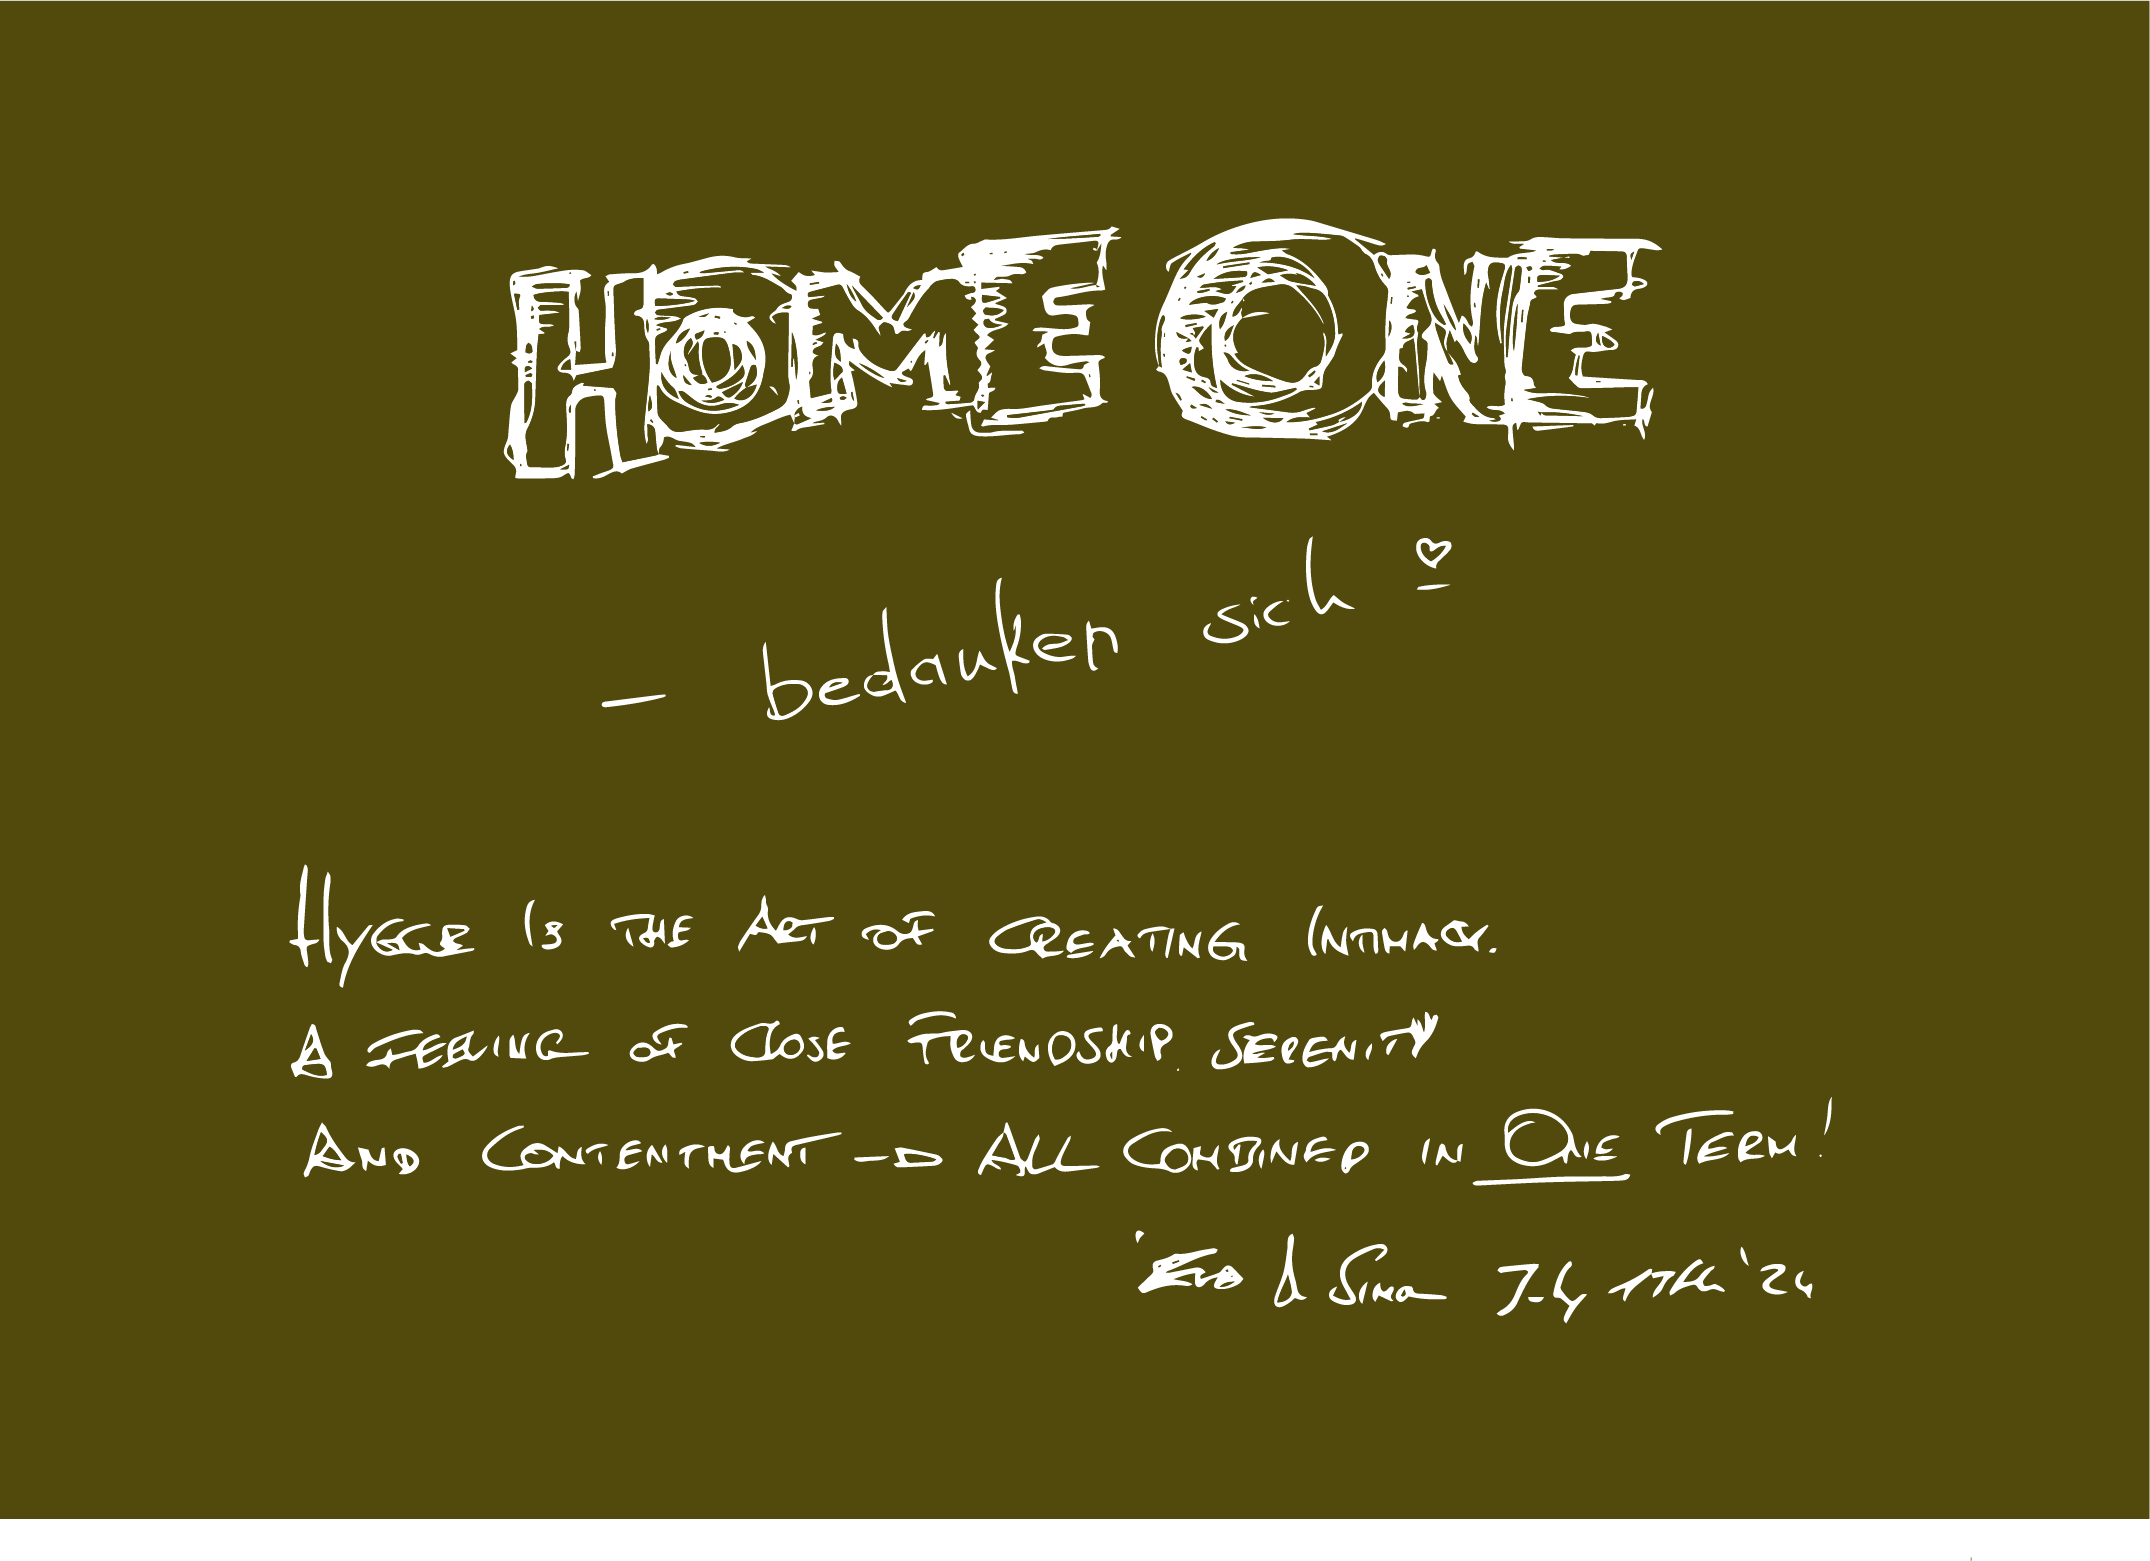 HOME ONE
– bedanken sich
HYGGE IS THE ART OF CREATING INTIMACY.
A FEELING OF CLOSE FRIENDSHIP. SERENITY
AND CONTENTMENT → ALL COMBINED IN ONE TERM!
& SIMON July 17th '24